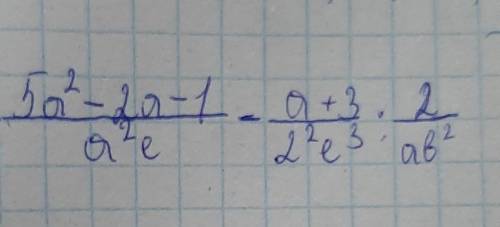 (5a² - 2a - 1)/(a²e) - (a + 3)/(2²e³) : 2/(ab²)